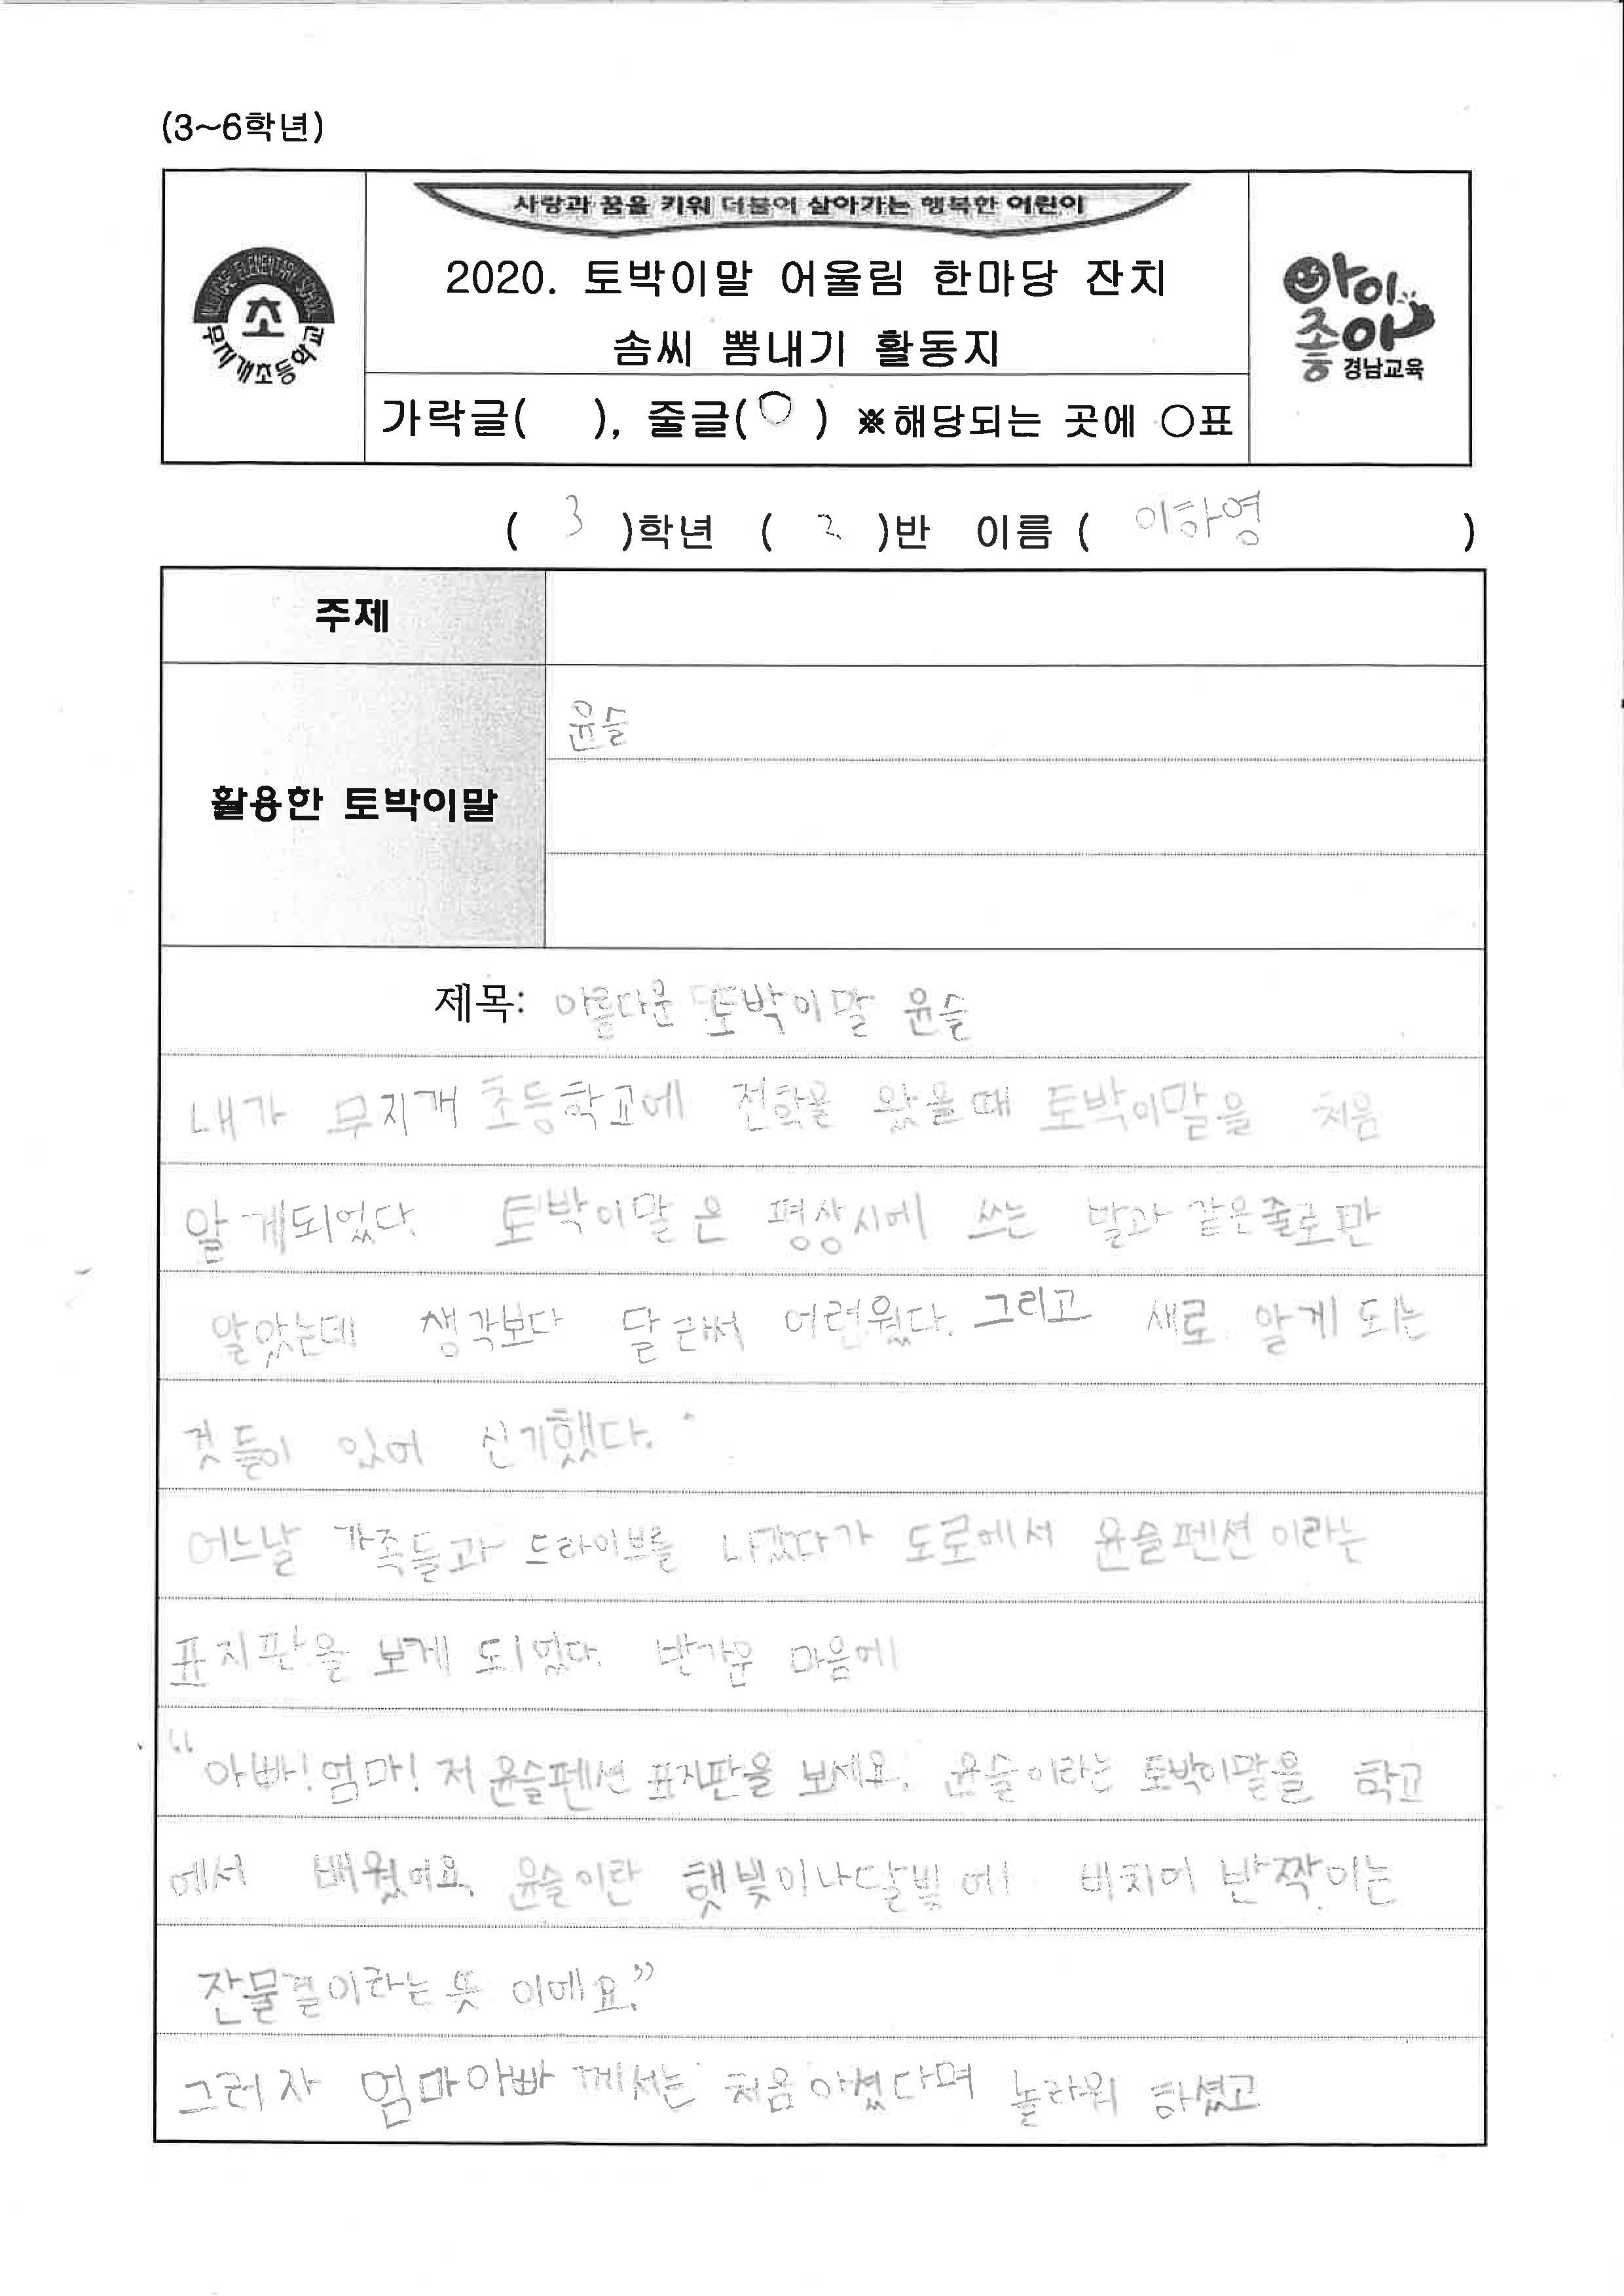 (3~6학년)
사랑과 꿈을 키워 더불어 살아가는 행복한 어린이
2020. 토박이말 어울림 한마당 잔치
솜씨 뽐내기 활동지
가락글( ), 줄글(○) ※해당되는 곳에 ○표
MUJIGAE ELEMENTARY SCHOOL
초
무지개초등학교
아이좋아
경남교육
( 3 )학년 ( 2 )반 이름 ( 이하영 )
주제
활용한 토박이말
윤슬
제목: 아름다운 토박이말 윤슬
내가 무지개 초등학교에 전학을 왔을때 토박이말을 처음
알게되었다. 토박이말은 평상시에 쓰는 말과 같은줄로만
알았는데 생각보다 달라서 어려웠다. 그리고 새로 알게 되는
것들이 있어 신기했다.
어느날 가족들과 드라이브를 나갔다가 도로에서 윤슬펜션이라는
표지판을 보게 되었다. 반가운 마음에
"아빠! 엄마! 저 윤슬펜션 표지판을 보세요. 윤슬이라는 토박이말을 학교
에서 배웠어요. 윤슬이란 햇빛이나달빛에 비치어 반짝이는
잔물결이라는 뜻 이에요."
그러자 엄마아빠 께서는 처음아셨다며 놀라워 하셨고